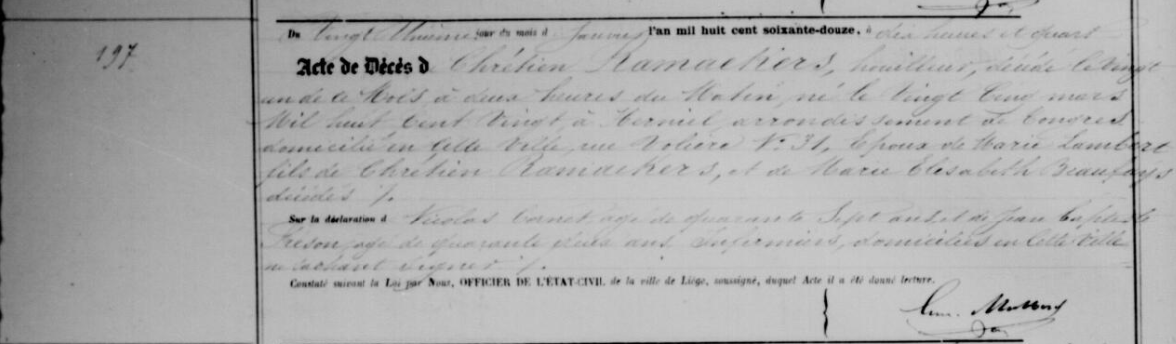 197
Du Vingt Unième jour du mois d Janvier l'an mil huit cent soixante-douze, à dix heures et quart
Acte de Décès d Chrétien Ramaekers, houilleur, décédé le vingt
un de ce Mois, à deux heures du Matin, né le Vingt Cinq mars
Mil huit Cent Vingt, à Herniel, arrondissement de Tongres
domicilié en Cette Ville, rue Volière N° 31, Epoux de Marie Lambert
fils de Chrétien Ramaekers, et de Marie Elisabeth Beaufays
décédés /.
Sur la déclaration d Nicolas Cornet, âgé de quarante Sept ans et de Jean Baptiste
âgé de quarante deux ans, Infirmiers, domiciliés en Cette Ville
ne Sachant Signer /.
Constaté suivant la Loi par Nous, OFFICIER DE L'ÉTAT-CIVIL de la ville de Liége, soussigné, duquel Acte il a été donné lecture.